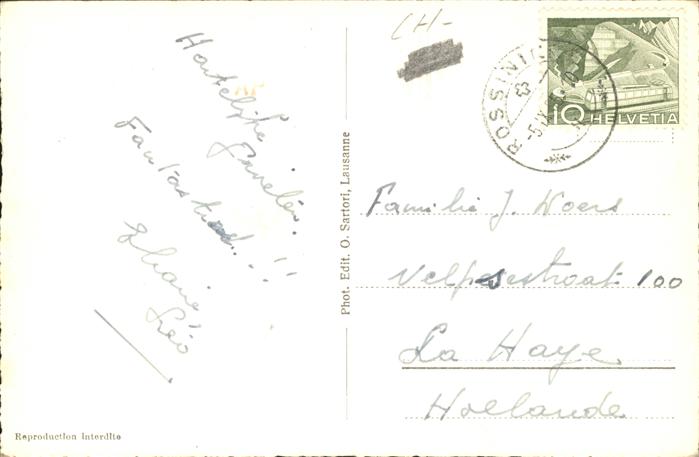 CH-
Hartelijke
Groeten.
Fantastisch...!!
Léo
Phot. Edit. O. Sartori, Lausanne
Reproduction Interdite
ROSSINI
10 HELVETIA
Familie J. Woers
Velpsestraat 100
La Haye
Hollande